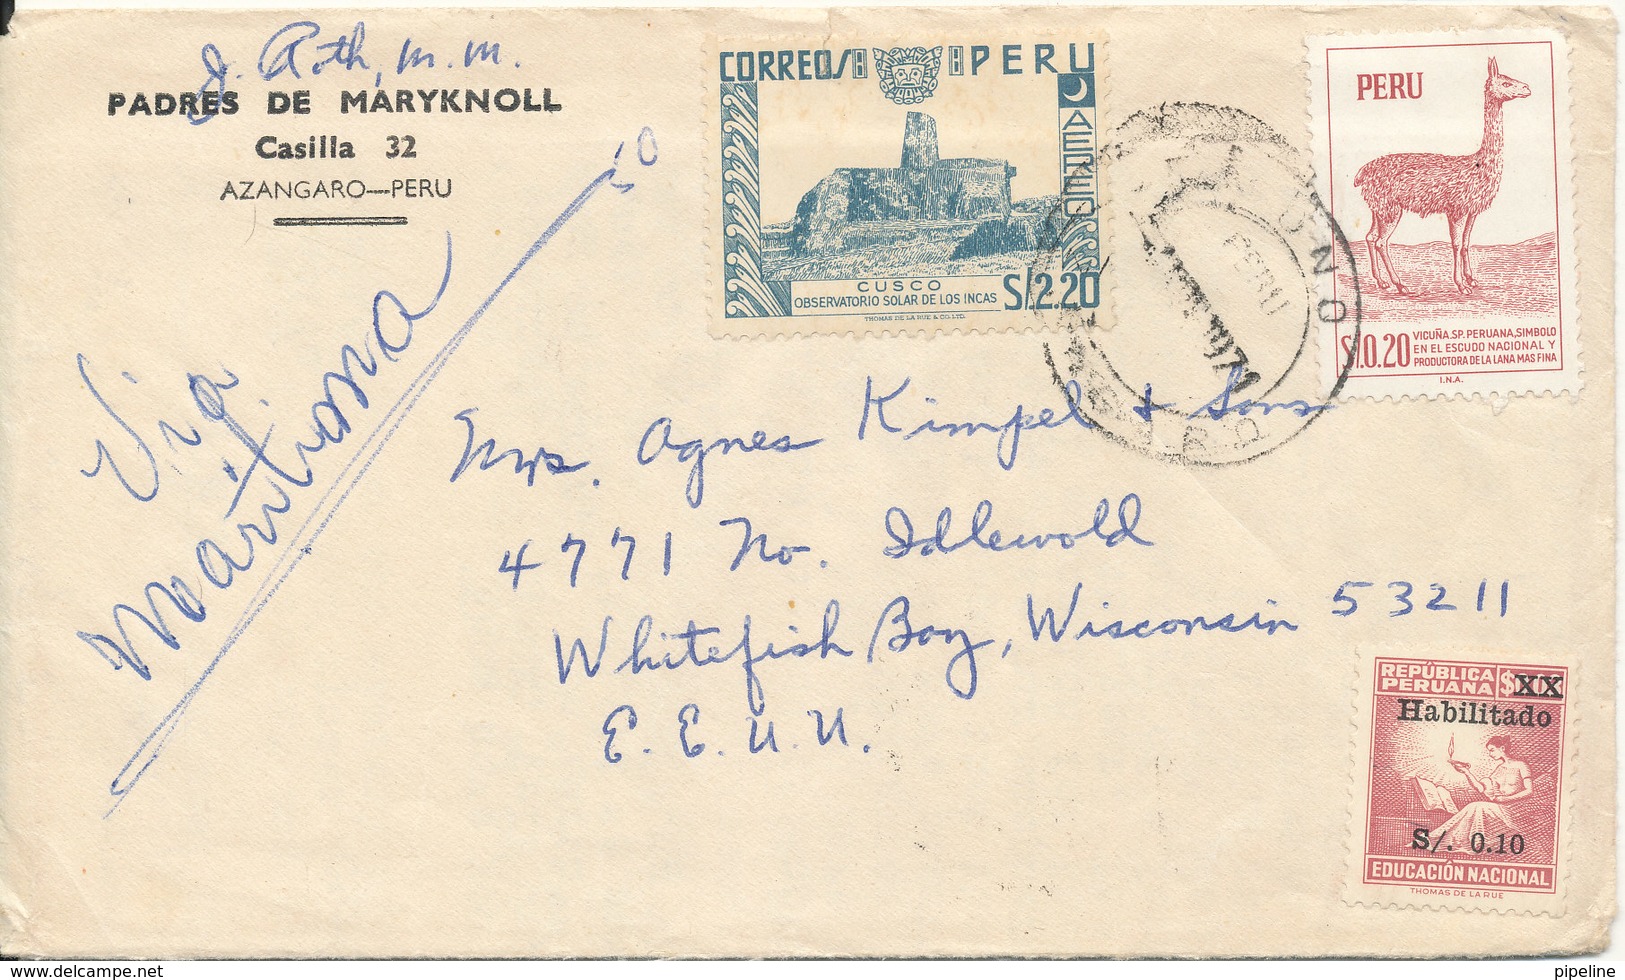 J. Roth, M.M.
PADRES DE MARYKNOLL
Casilla 32
AZANGARO—PERU
Via
Maritima
CORREOS PERU
AEREO
CUSCO
OBSERVATORIO SOLAR DE LOS INCAS
S/.2.20
THOMAS DE LA RUE & CO. LTD.
PERU
S/.0.20
VICUÑA, SP. PERUANA, SIMBOLO
EN EL ESCUDO NACIONAL Y
PRODUCTORA DE LA LANA MAS FINA
I.N.A.
PUNO
PERU
Mrs. Agnes Kimpel & Sons
4771 No. Idlewold
Whitefish Bay, Wisconsin 53211
E.E.U.U.
REPÚBLICA
PERUANA
XX
Habilitado
S/. 0.10
EDUCACIÓN NACIONAL
THOMAS DE LA RUE
delcampe.net
pipeline